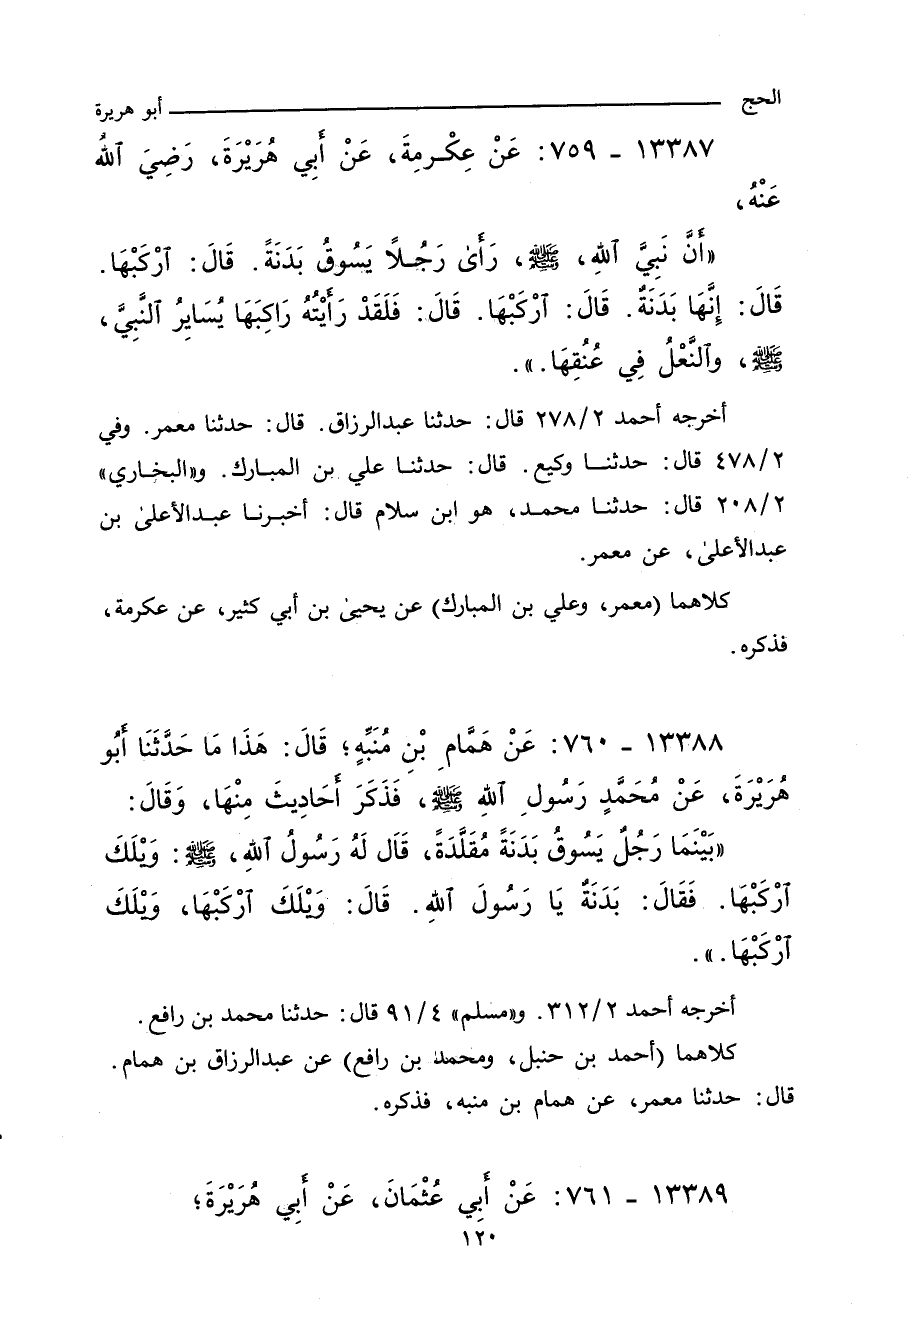 الحج ــــــــــ أبو هريرة
١٣٣٨٧ - ٧٥٩: عَنْ عِكْرِمةَ، عَنْ أَبِي هُرَيْرَةَ، رَضِيَ ٱللهُ
عَنْهُ،
«أَنَّ نَبِيَّ ٱللهِ، ﷺ، رَأَىٰ رَجُلاً يَسُوقُ بَدَنَةً. قَالَ: ٱرْكَبْهَا.
قَالَ: إِنَّهَا بَدَنَةٌ. قَالَ: ٱرْكَبْهَا. قَالَ: فَلَقَدْ رَأَيْتُهُ رَاكِبَهَا يُسَايِرُ ٱلنَّبِيَّ،
ﷺ، وٱلنَّعْلُ فِي عُنُقِهَا.».
أخرجه أحمد ٢٧٨/٢ قال: حدثنا عبدالرزاق. قال: حدثنا معمر. وفي
٤٧٨/٢ قال: حدثنا وكيع. قال: حدثنا علي بن المبارك. و«البخاري»
٢٠٨/٢ قال: حدثنا محمد، هو ابن سلام قال: أخبرنا عبدالأعلىٰ بن
عبدالأعلىٰ، عن معمر.
كلاهما (معمر، وعلي بن المبارك) عن يحيىٰ بن أبي كثير، عن عكرمة،
فذكره.
١٣٣٨٨ - ٧٦٠: عَنْ هَمَّامِ بْنِ مُنَبِّهٍ؛ قَالَ: هَذَا مَا حَدَّثَنَا أَبُو
هُرَيْرَةَ، عَنْ مُحَمَّدٍ رَسُولِ ٱللهِ ﷺ، فَذَكَرَ أَحَادِيثَ مِنْهَا، وَقَالَ:
«بَيْنَمَا رَجُلٌ يَسُوقُ بَدَنَةً مُقَلَّدَةً، قَال لَهُ رَسُولُ ٱللهِ، ﷺ: وَيْلَكَ
ٱرْكَبْهَا. فَقَالَ: بَدَنَةٌ يَا رَسُولَ ٱللهِ. قَالَ: وَيْلَكَ ٱرْكَبْهَا، وَيْلَكَ
ٱرْكَبْهَا.».
أخرجه أحمد ٣١٢/٢. و«مسلم» ٩١/٤ قال: حدثنا محمد بن رافع.
كلاهما (أحمد بن حنبل، ومحمد بن رافع) عن عبدالرزاق بن همام.
قال: حدثنا معمر، عن همام بن منبه، فذكره.
١٣٣٨٩ - ٧٦١: عَنْ أَبِي عُثْمَانَ، عَنْ أَبِي هُرَيْرَةَ؛
١٢٠